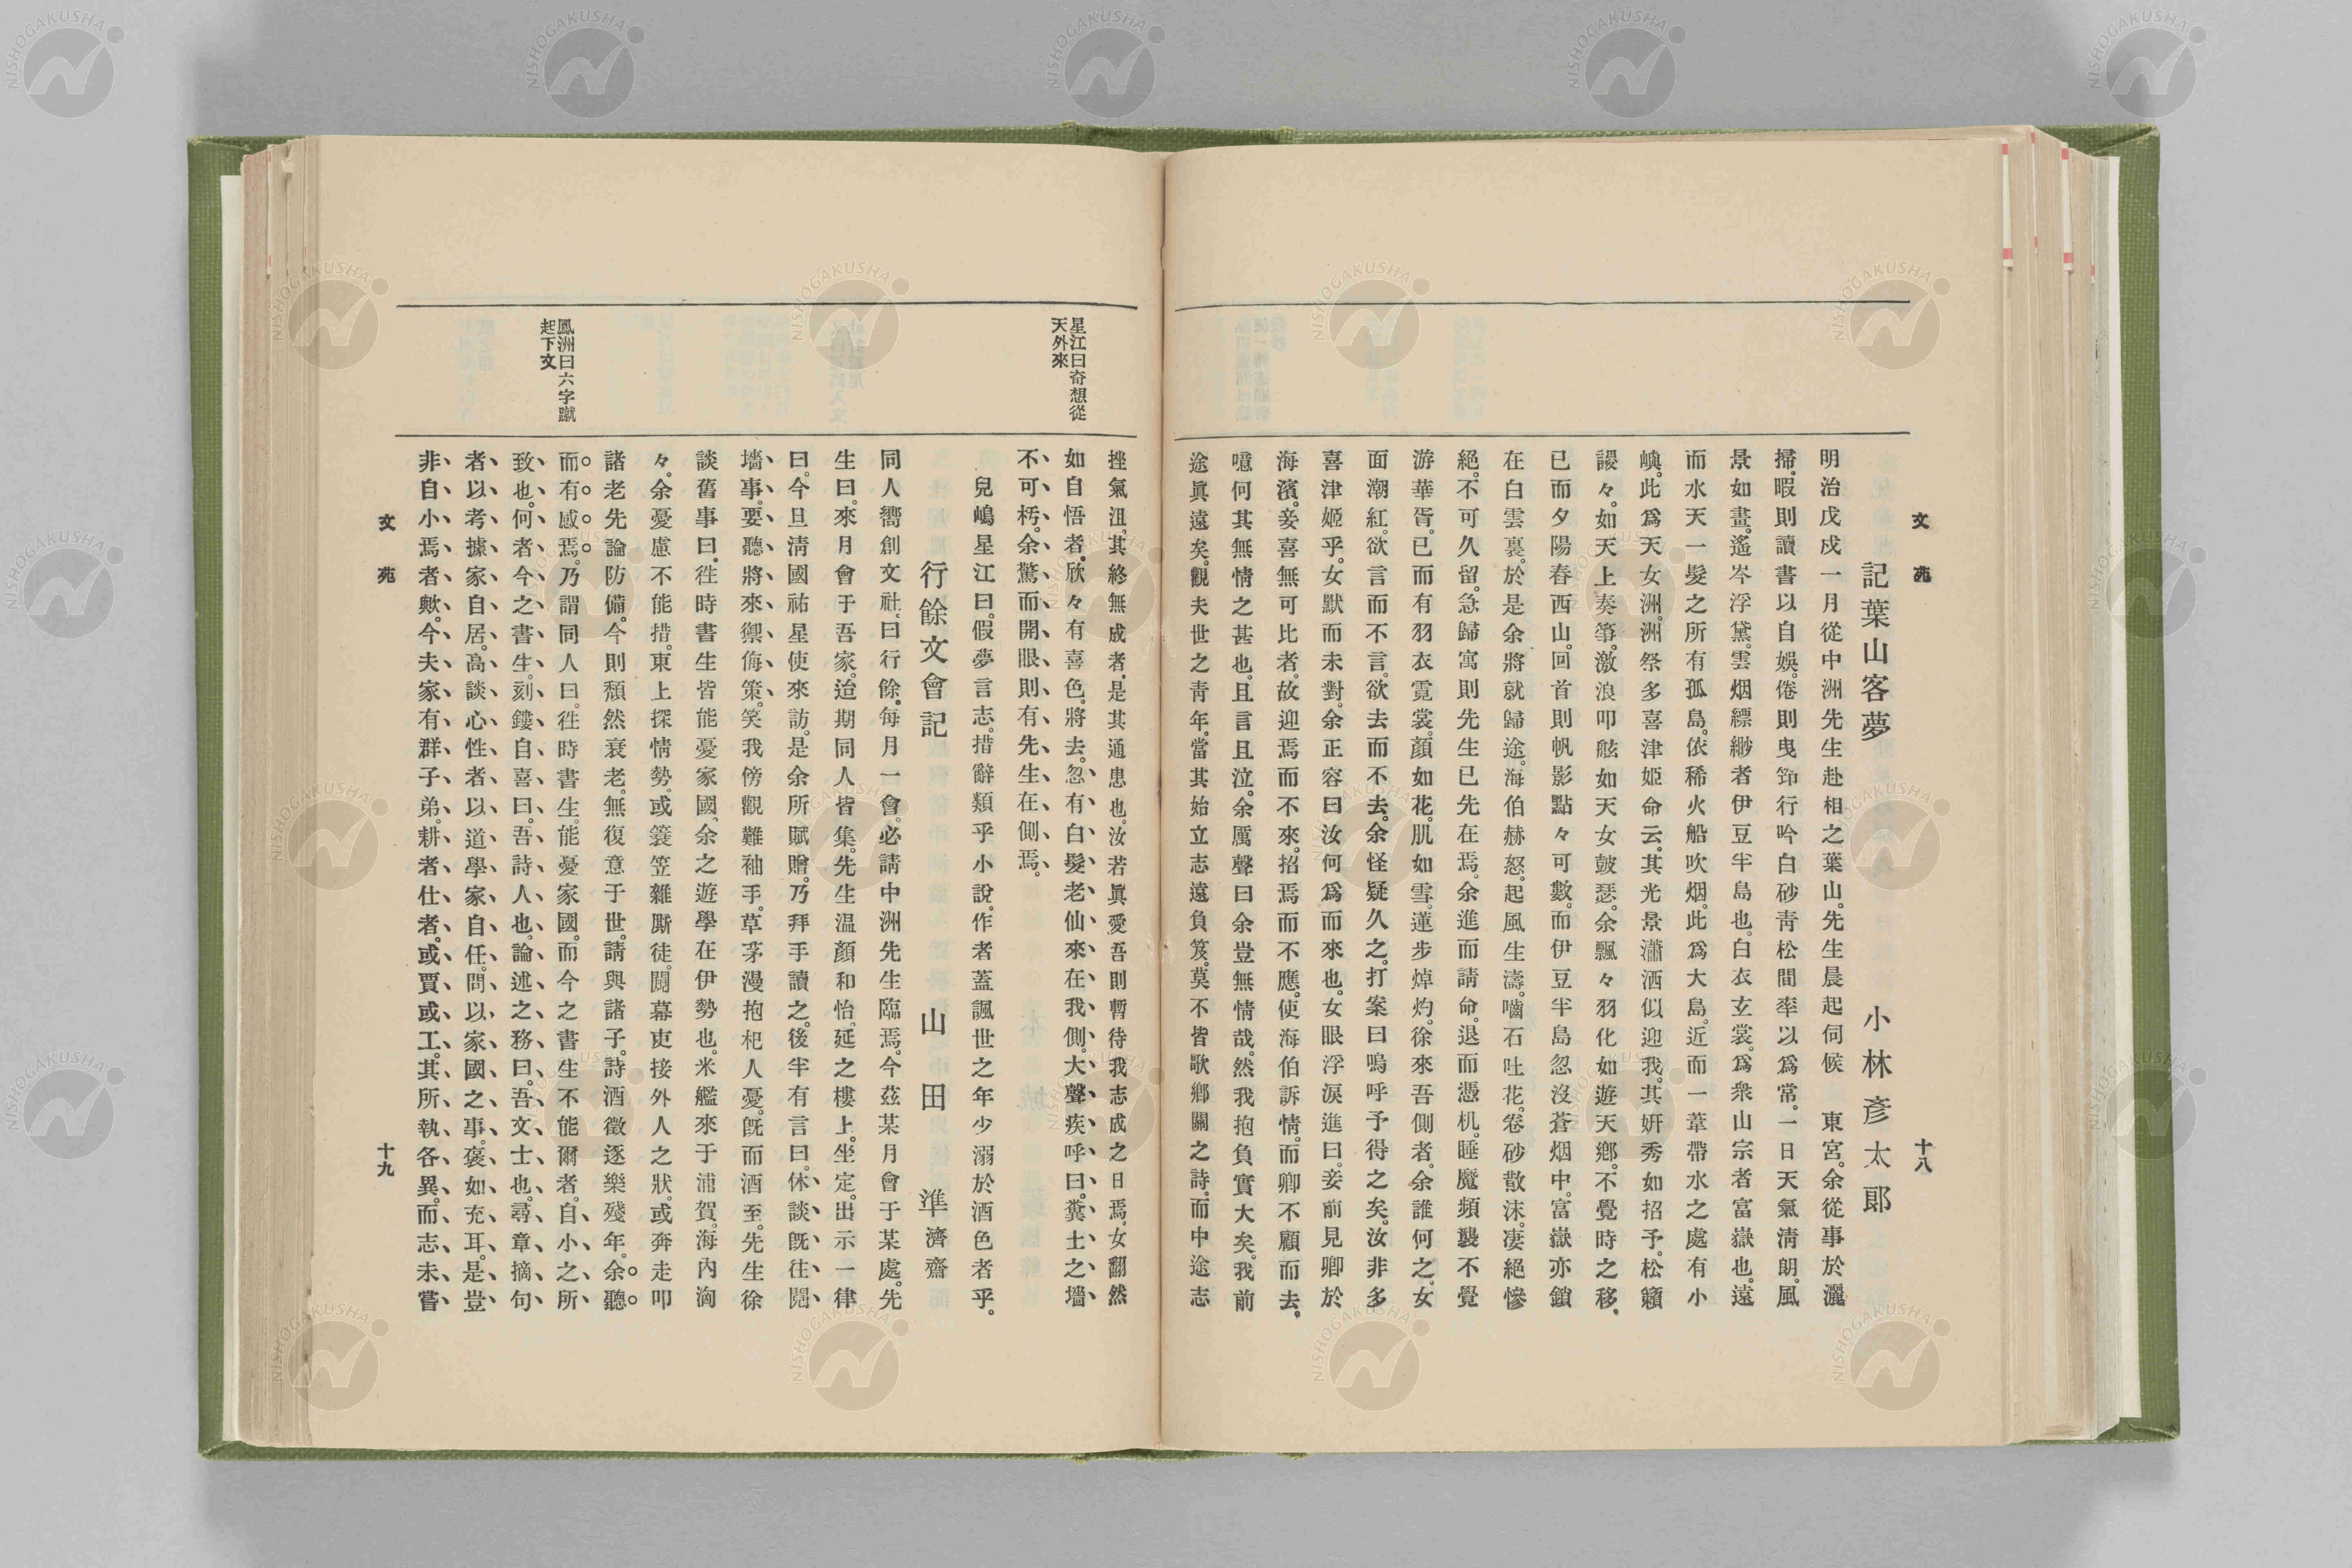 文苑
十八
記葉山客夢　小林彥太郎
明治戊戌一月從中洲先生赴相之葉山。先生晨起伺候　東宮。余從事於灑
掃。暇則讀書以自娛。倦則曳筇行吟白砂靑松間率以爲常。一日天氣淸朗。風
景如畫。遙岑浮黛。雲烟縹緲者伊豆半島也。白衣玄裳。爲衆山宗者富嶽也。遠
而水天一髮之所有孤島。依稀火船吹烟。此爲大島。近而一葦帶水之處有小
嶼。此爲天女洲。洲祭多喜津姬命云。其光景瀟洒似迎我。其妍秀如招予。松籟
謖々。如天上奏箏。激浪叩舷如天女皷瑟。余飄々羽化如遊天鄕。不覺時之移。
已而夕陽舂西山。回首則帆影點々可數。而伊豆半島忽沒蒼烟中。富嶽亦鎖
在白雲裏。於是余將就歸途。海伯赫怒。起風生濤。嚙石吐花。卷砂散沫。凄絕慘
絕。不可久留。急歸寓則先生已先在焉。余進而請命。退而憑机。睡魔頻襲不覺
游華胥。已而有羽衣霓裳。顏如花。肌如雪。蓮步焯灼。徐來吾側者。余誰何之。女
面潮紅。欲言而不言。欲去而不去。余怪疑久之。打案曰嗚呼予得之矣。汝非多
喜津姬乎。女默而未對。余正容曰汝何爲而來也。女眼浮淚進曰。妾前見卿於
海濱。妾喜無可比者。故迎焉而不來。招焉而不應。使海伯訴情。而卿不顧而去。
噫何其無情之甚也。且言且泣。余厲聲曰余豈無情哉。然我抱負實大矣。我前
途眞遠矣。觀夫世之靑年。當其始立志遠負笈。莫不皆歌鄕關之詩。而中途志
挫氣沮。其終無成者。是其通患也。汝若眞愛吾則暫待我志成之日焉。女翻然
星江曰奇想從
天外來
如自悟者。欣々有喜色。將去。忽有白髮老仙來在我側。大聲疾呼曰。糞土之墻
不可杇。余驚而開眼。則有先生在側焉。
兒嶋星江曰。假夢言志。措辭類乎小說。作者蓋諷世之年少溺於酒色者乎。
行餘文會記　山田準濟齋
同人嚮創文社。曰行餘。每月一會。必請中洲先生臨焉。今玆某月會于某處。先
生曰。來月會于吾家。迨期同人皆集。先生温顏和怡。延之樓上。坐定。出示一律
曰。今旦淸國祐星使來訪。是余所賦贈。乃拜手讀之。後半有言曰。休談旣往鬩
墻事。要聽將來禦侮策。笑我傍觀難袖手。草茅漫抱杞人憂。旣而酒至。先生徐
談舊事曰。徃時書生皆能憂家國。余之遊學在伊勢也。米艦來于浦賀。海內洶
々。余憂慮不能措。東上探情勢。或簑笠雜厮徒。闖幕吏接外人之狀。或奔走叩
諸老先論防備。今則頽然衰老。無復意于世。請與諸子。詩酒徵逐樂殘年。余聽
鳳洲曰六字蹴
起下文
而有感焉。乃謂同人曰。徃時書生。能憂家國。而今之書生不能爾者。自小之所
致也。何者今之書生。刻鏤自喜曰。吾詩人也。論述之務曰。吾文士也。尋章摘句
者。以考據家自居。高談心性者。以道學家自任。問以家國之事。褎如充耳。是豈
非自小焉者歟。今夫家有群子弟。耕者仕者。或賈或工。其所執各異。而志未嘗
文苑
十九
NISHOGAKUSHA